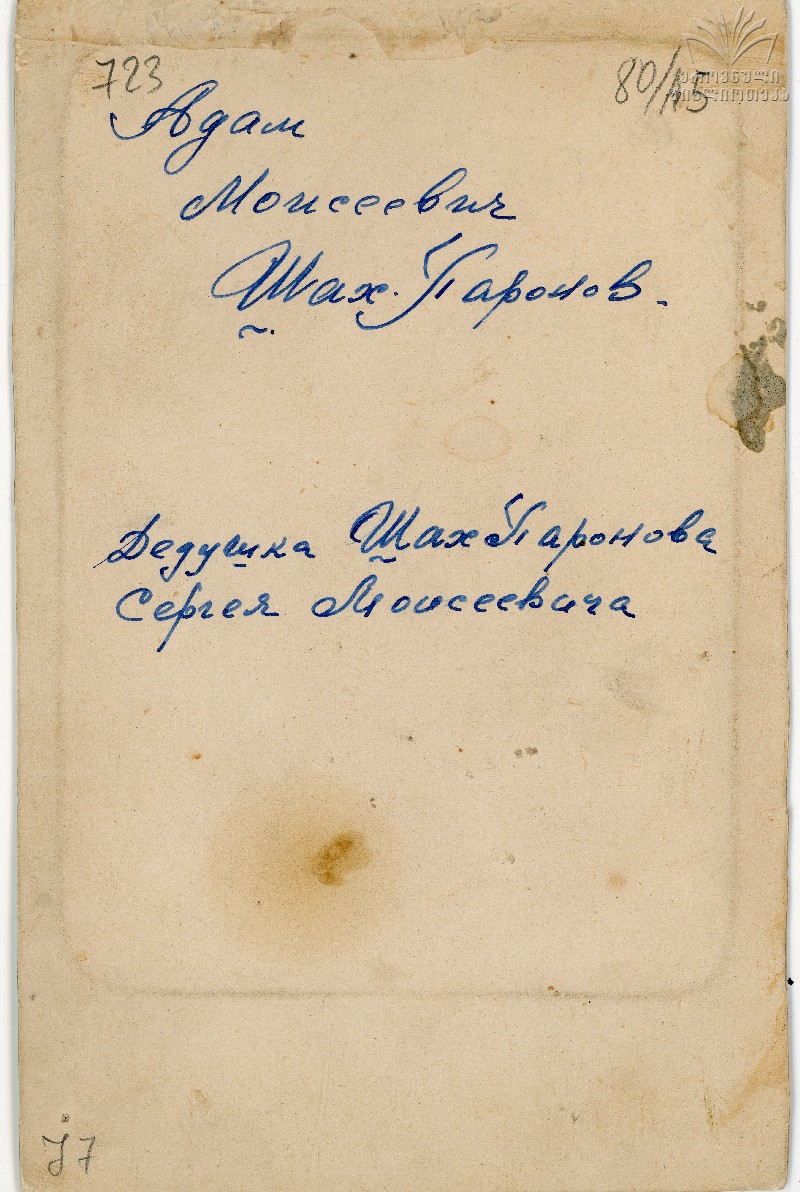 723
80/15
ეროვნული
ბიბლიოთეკა
Адам
Моисеевич
Шах-Паронов.
Дедушка Шах Паронова
Сергея Моисеевича